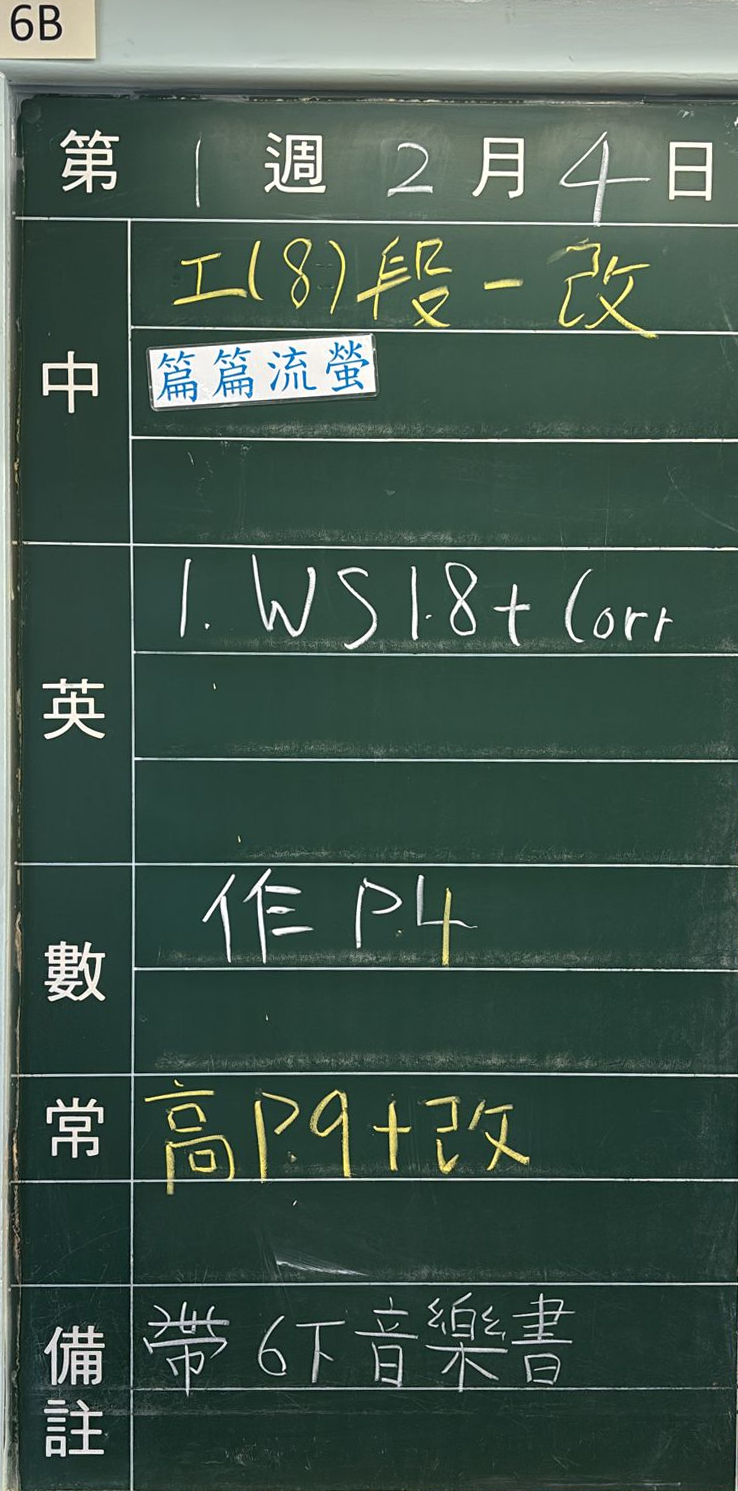 6B
第 1 週 2 月 4 日
中
工(8)段一改
篇篇流螢
英
1. WS 1.8 + Corr
數
作 P.4
常
高 P.9 + 改
備註
帶 6下音樂書